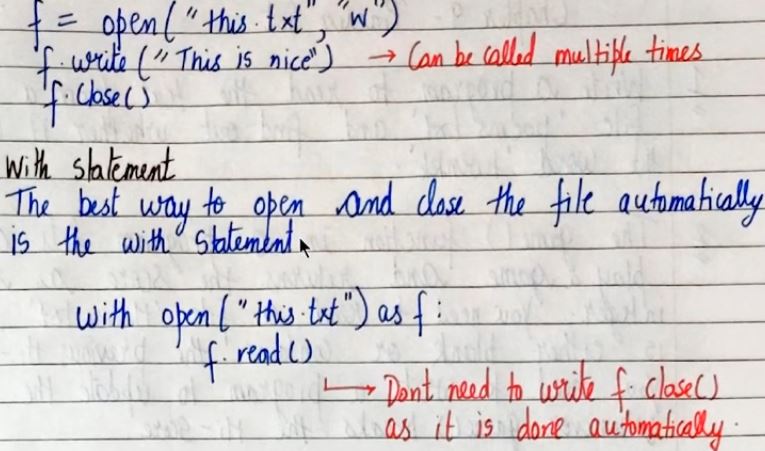 f = open("this.txt", "w")
f.write("This is nice") → Can be called multiple times
f.close()
With statement
The best way to open and close the file automatically
is the with statement.
with open("this.txt") as f:
f.read()
→ Dont need to write f.close()
as it is done automatically.